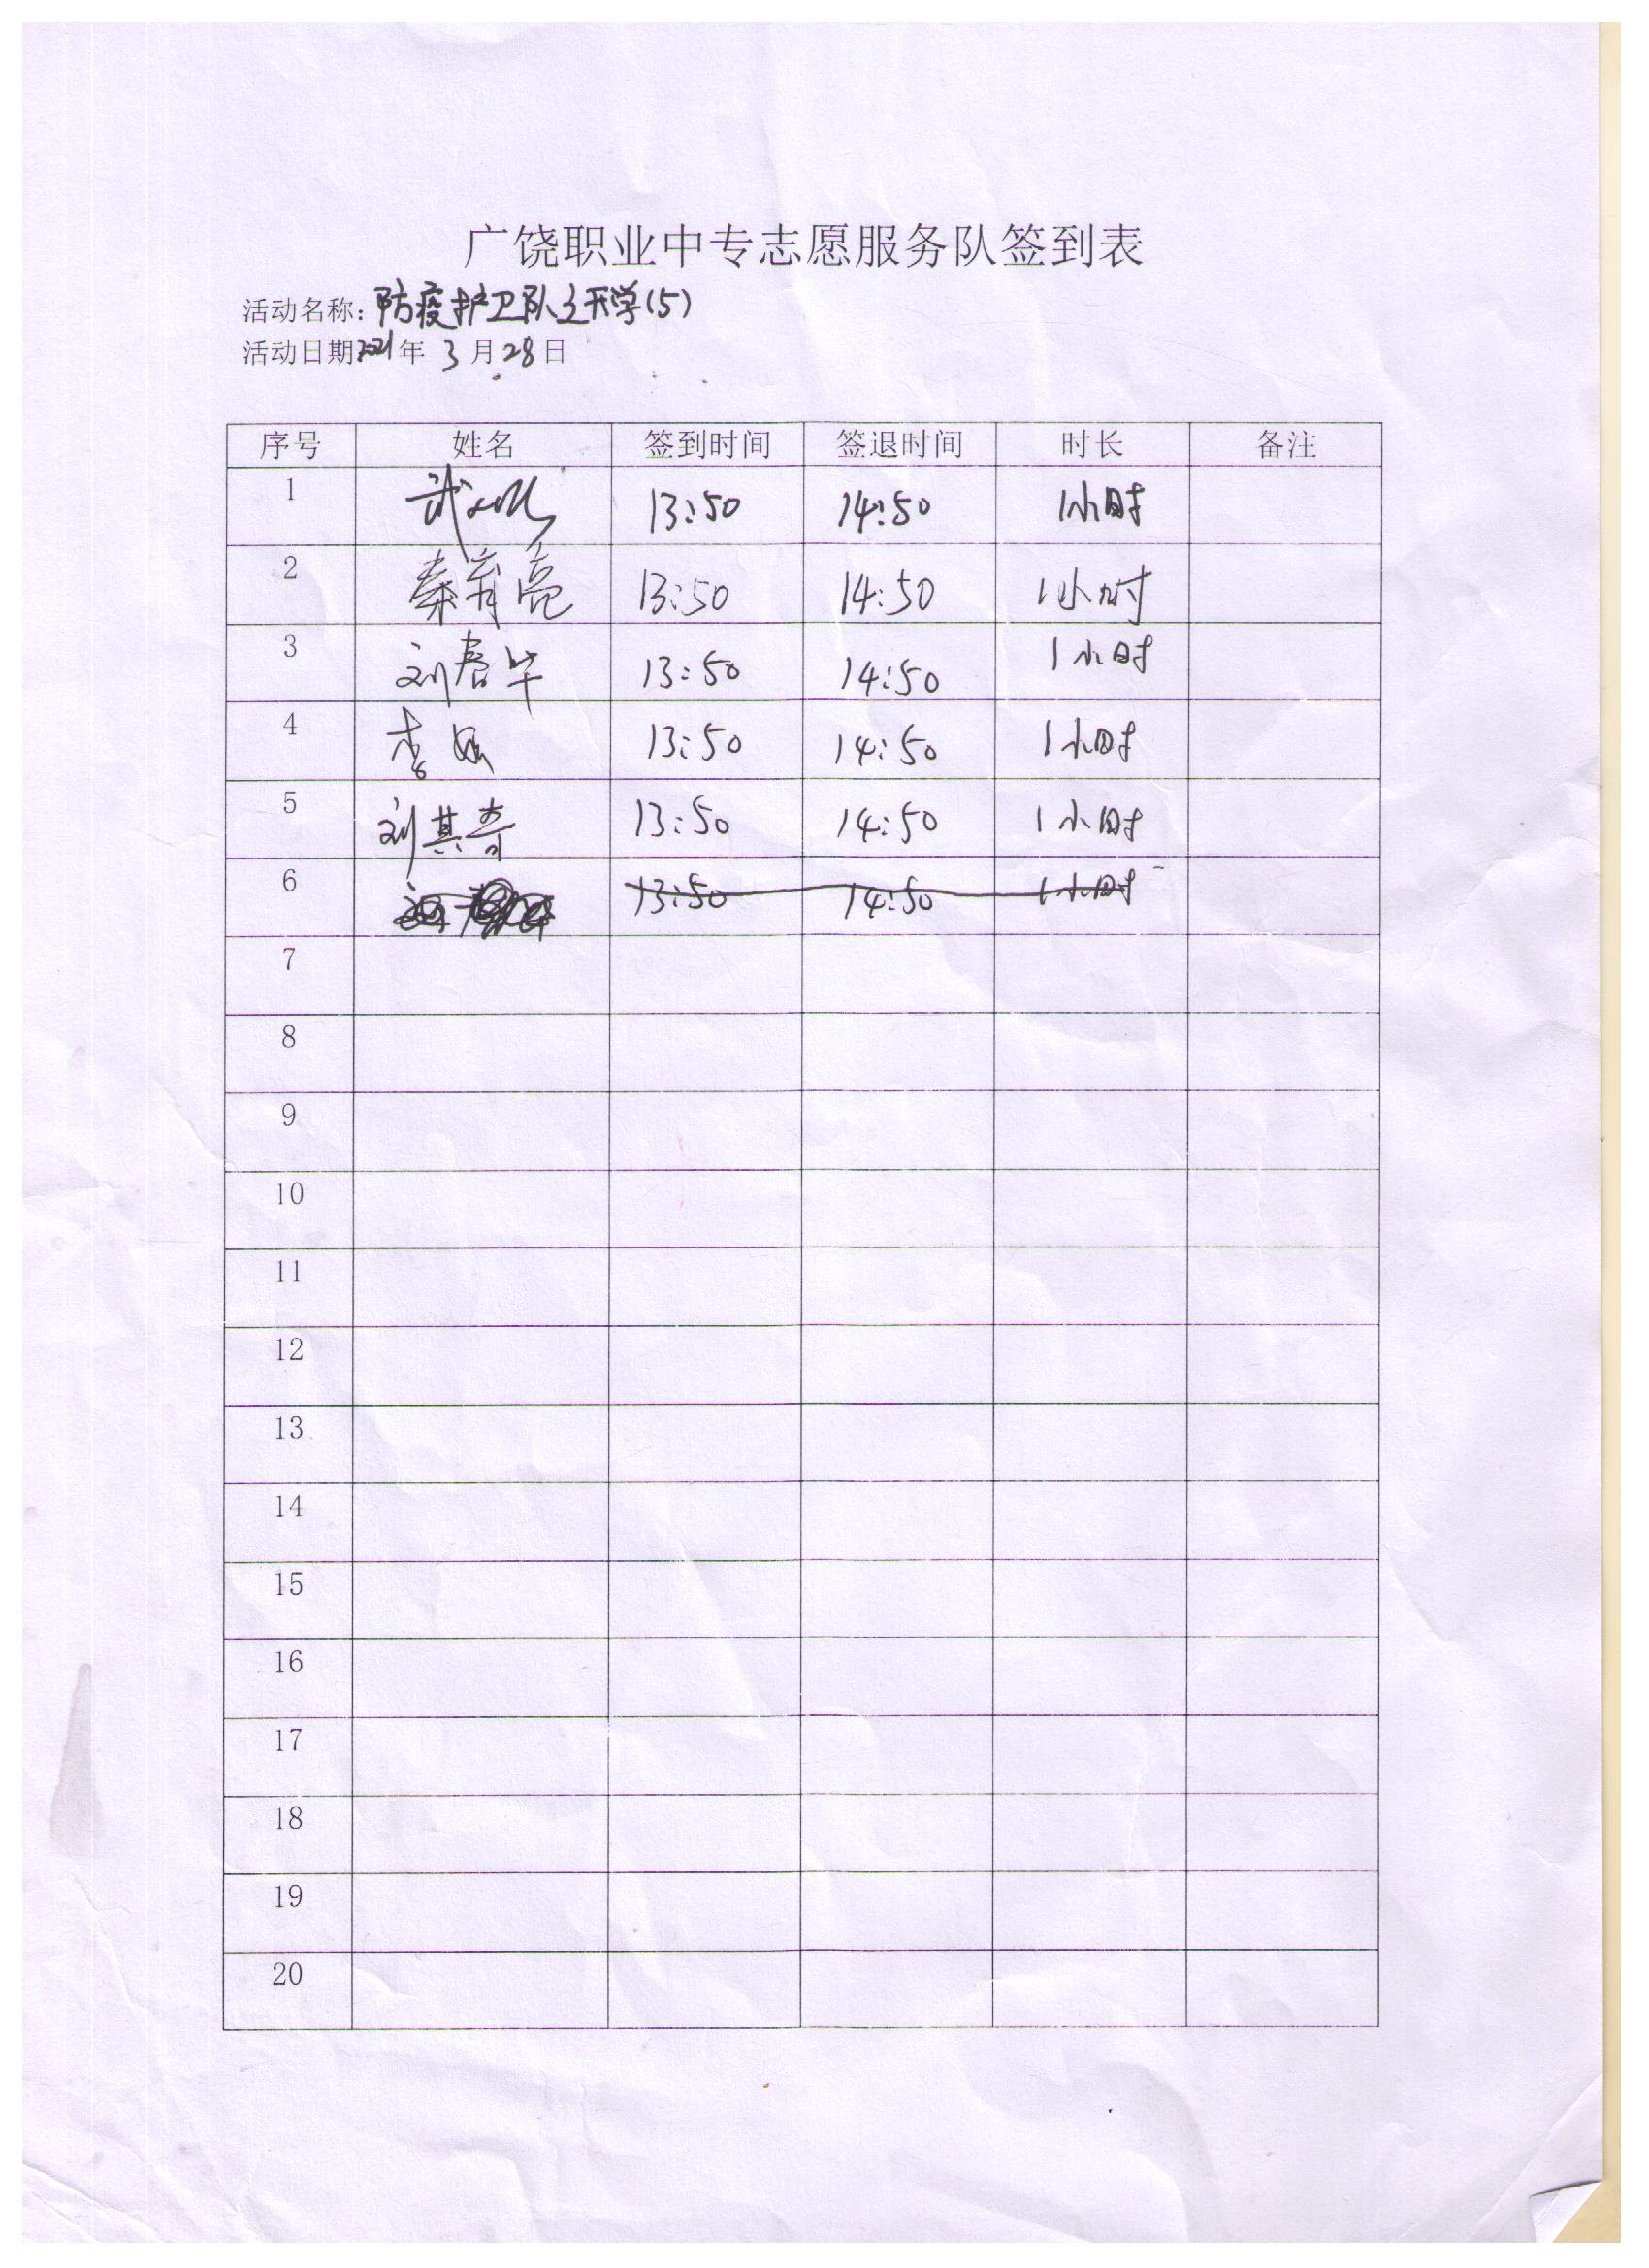 广饶职业中专志愿服务队签到表
活动名称：防疫护卫队之开学(5)
活动日期2021年 3 月 28 日
序号 姓名 签到时间 签退时间 时长 备注
1 武 13:50 14:50 1小时
2 秦育亮 13:50 14:50 1小时
3 刘春华 13:50 14:50 1小时
4 李 13:50 14:50 1小时
5 刘其奇 13:50 14:50 1小时
6 13:50 14:50 1小时
7
8
9
10
11
12
13
14
15
16
17
18
19
20